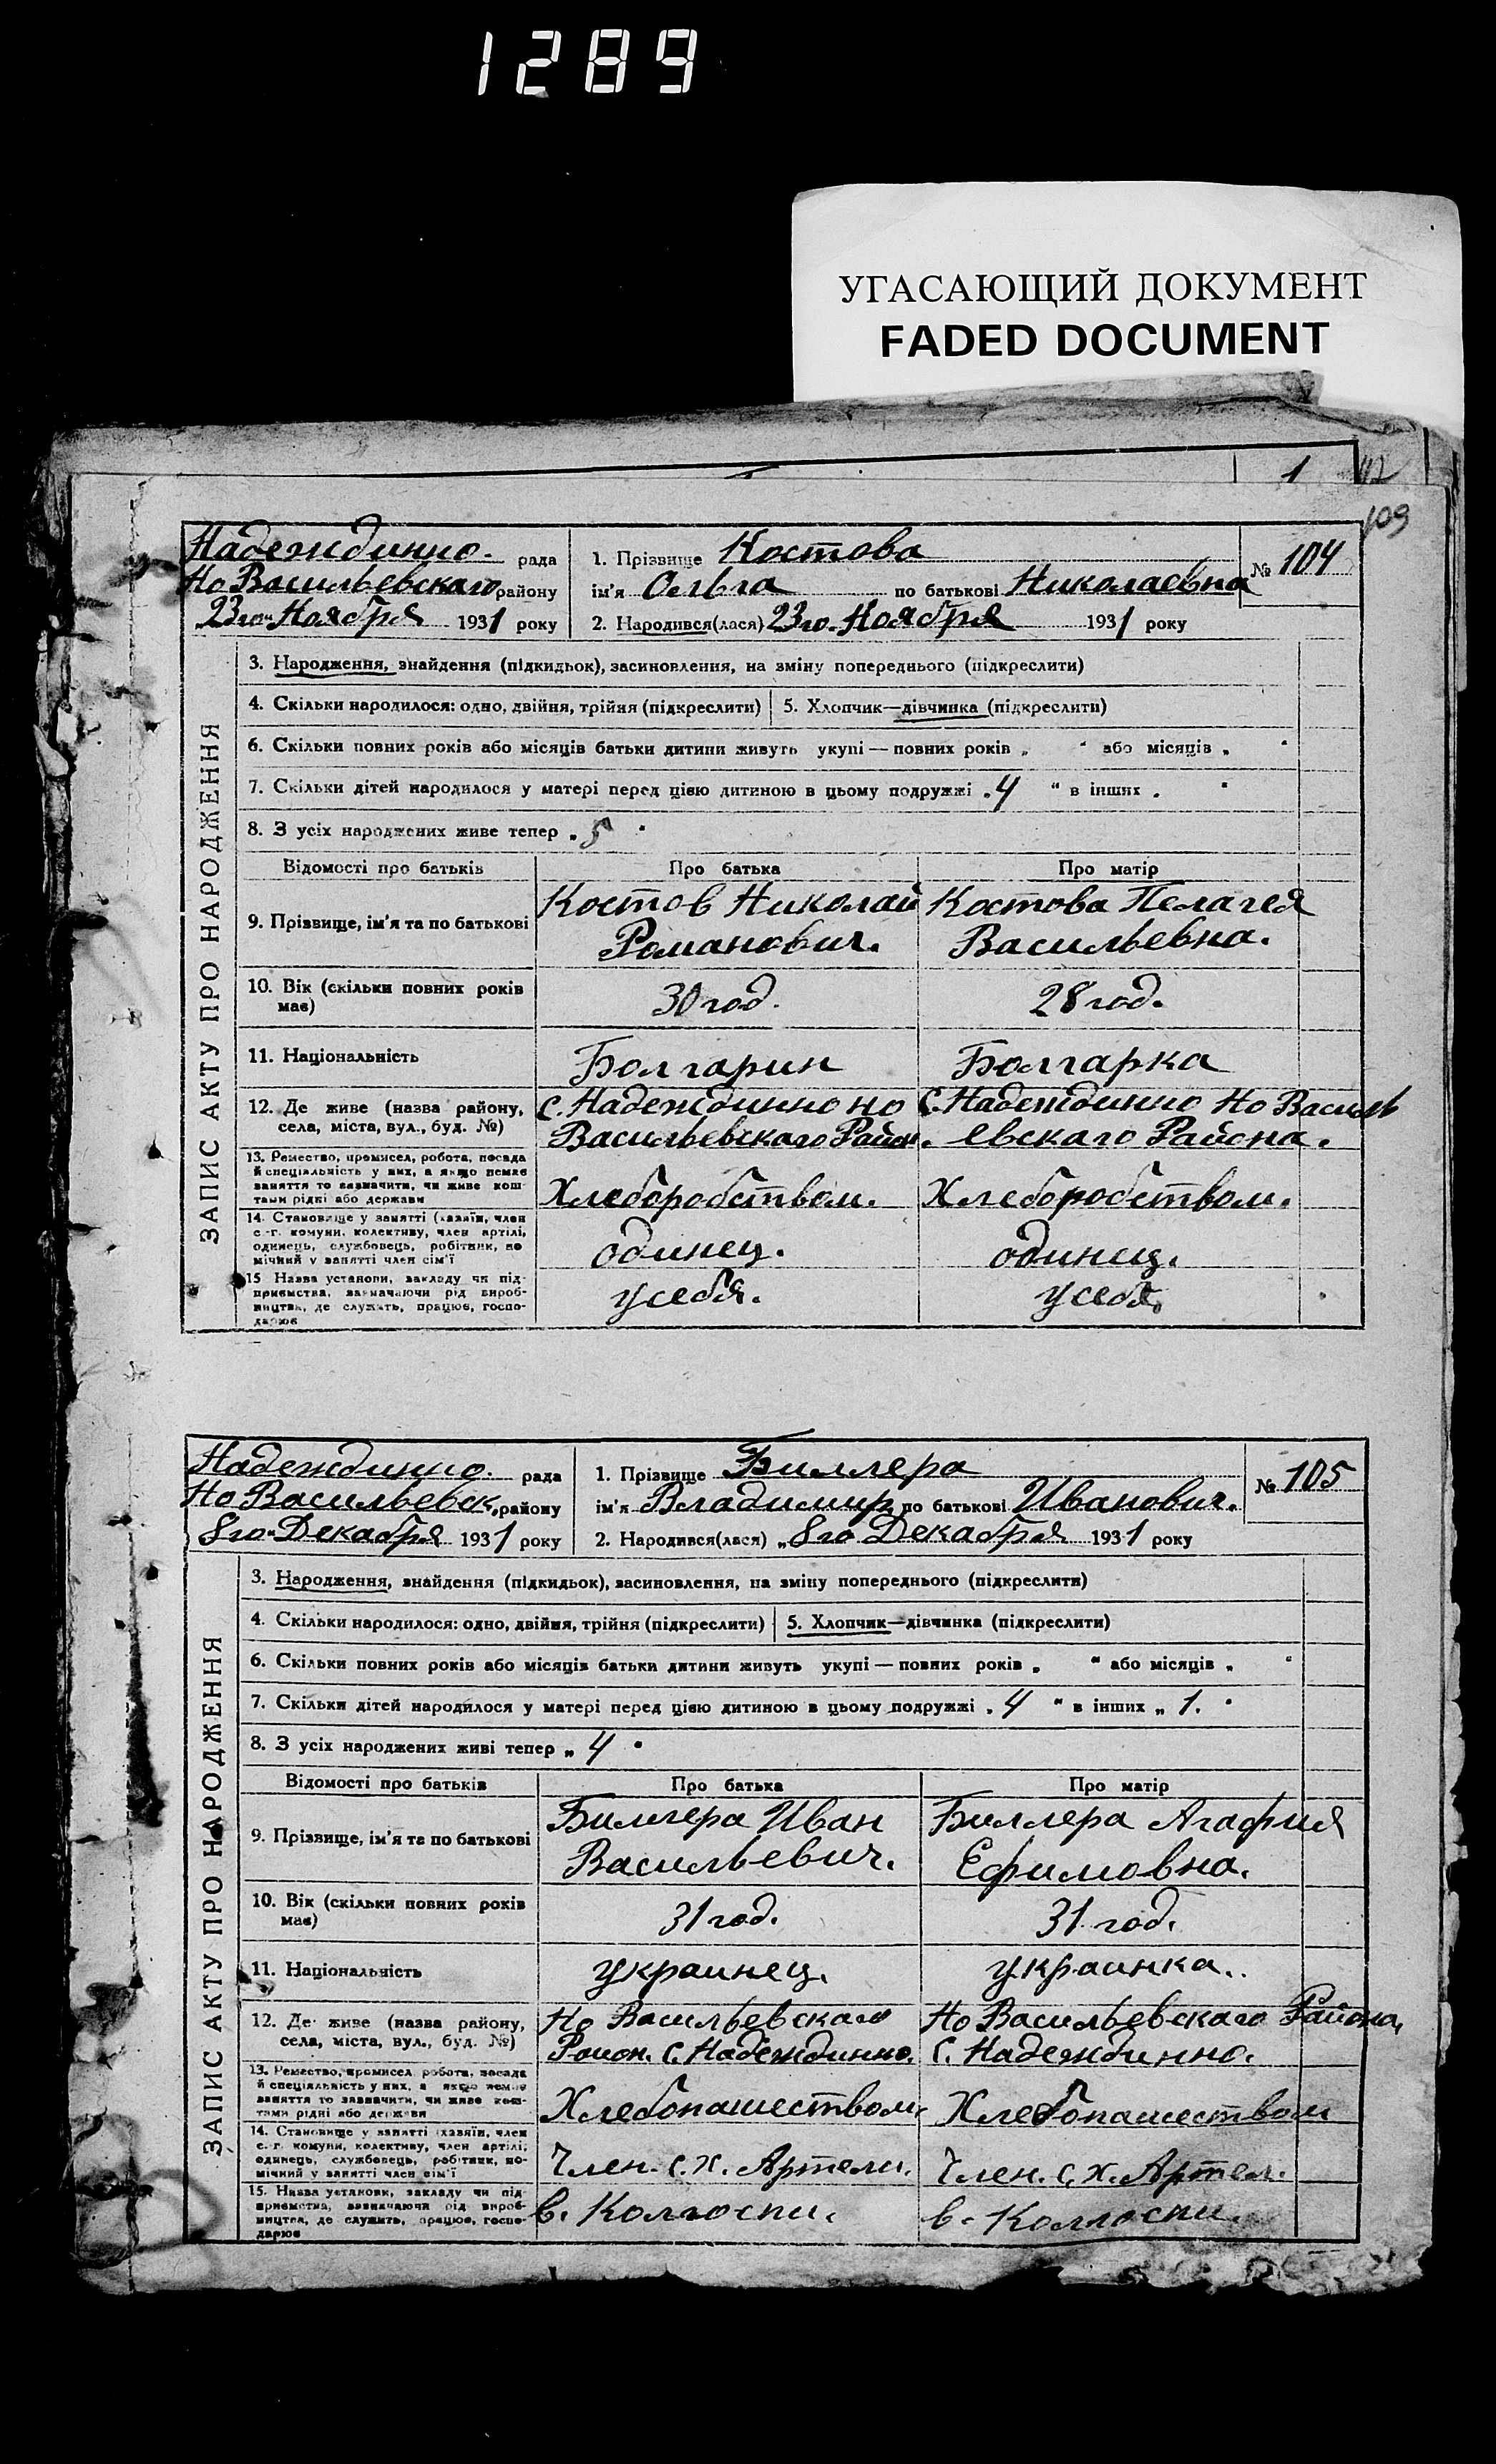 1289
УГАСАЮЩИЙ ДОКУМЕНТ
FADED DOCUMENT
1
112
109
Надеждинно. рада
Но Васильевскаго району
23го Ноября 1931 року
1. Прізвище Костова
ім'я Ольга по батькові Николаевна
2. Народився(лася) 23го. Ноября 1931 року
№ 104
ЗАПИС АКТУ ПРО НАРОДЖЕННЯ
3. Народження, знайдення (підкидьок), засиновлення, на зміну попереднього (підкреслити)
4. Скільки народилося: одно, двійня, трійня (підкреслити) 5. Хлопчик—дівчинка (підкреслити)
6. Скільки повних років або місяців батьки дитини живуть укупі — повних років „ “ або місяців „ “
7. Скільки дітей народилося у матері перед цією дитиною в цьому подружжі „ 4 “ в інших „ “
8. З усіх народжених живе тепер „ 5 “
Відомості про батьків Про батька Про матір
9. Прізвище, ім'я та по батькові
Костов Николай
Романович.
Костова Пелагея
Васильевна.
10. Вік (скільки повних років
має)
30 год.
28 год.
11. Національність Болгарин Болгарка
12. Де живе (назва району,
села, міста, вул., буд. №)
С. Надеждинно но
Васильевскаго Район.
С. Надеждинно Но Василь
евскаго Района.
13. Ремество, промисел, робота, посада
й спеціяльність у них, а якщо немає
заняття то зазначити, чи живе кош-
тами рідні або держави
Хлеборобством.
Хлеборобством.
14. Становище у занятті (хазяїн, член
с.-г. комуни, колективу, член артілі,
одинець, службовець, робітник, по
мічний у занятті член сім'ї
одинец.
одинец.
15. Назва установи, закладу чи під-
приємства, зазначаючи рід вироб-
ництва, де служить, працює, госпо-
дарює
у себя.
у себя.
Надеждинно. рада
Но Васильевск. району
8го Декабря 1931 року
1. Прізвище Биллера
ім'я Владимир по батькові Иванович.
2. Народився(лася) „ 8го Декабря 1931 року
№ 105
ЗАПИС АКТУ ПРО НАРОДЖЕННЯ
3. Народження, знайдення (підкидьок), засиновлення, на зміну попереднього (підкреслити)
4. Скільки народилося: одно, двійня, трійня (підкреслити) 5. Хлопчик—дівчинка (підкреслити)
6. Скільки повних років або місяців батьки дитини живуть укупі — повних років „ “ або місяців „ “
7. Скільки дітей народилося у матері перед цією дитиною в цьому подружжі „ 4 “ в інших „ 1. “
8. З усіх народжених живі тепер „ 4 “
Відомості про батьків Про батька Про матір
9. Прізвище, ім'я та по батькові
Биллера Иван
Васильевич.
Биллера Агафия
Ефимовна.
10. Вік (скільки повних років
має)
31 год.
31 год.
11. Національність украинец. украинка.
12. Де живе (назва району,
села, міста, вул., буд. №)
Но Васильевскаго
Район. С. Надеждинно.
Но Васильевскаго Района,
С. Надеждинно.
13. Ремество, промисел, робота, посада
й спеціяльність у них, а якщо немає
заняття то зазначити, чи живе кош-
тами рідні або держави
Хлебопашеством.
Хлебопашеством
14. Становище у занятті (хазяїн, член
с.-г. комуни, колективу, член артілі,
одинець, службовець, робітник, по-
мічний у занятті член сім'ї
Член. с. х. Артели.
Член. с. х. Артел.
15. Назва установи, закладу чи під
приємства, зазначаючи рід вироб-
ництва, де служить, працює, госпо-
дарює
в. Колгоспи.
в. Колгоспи.